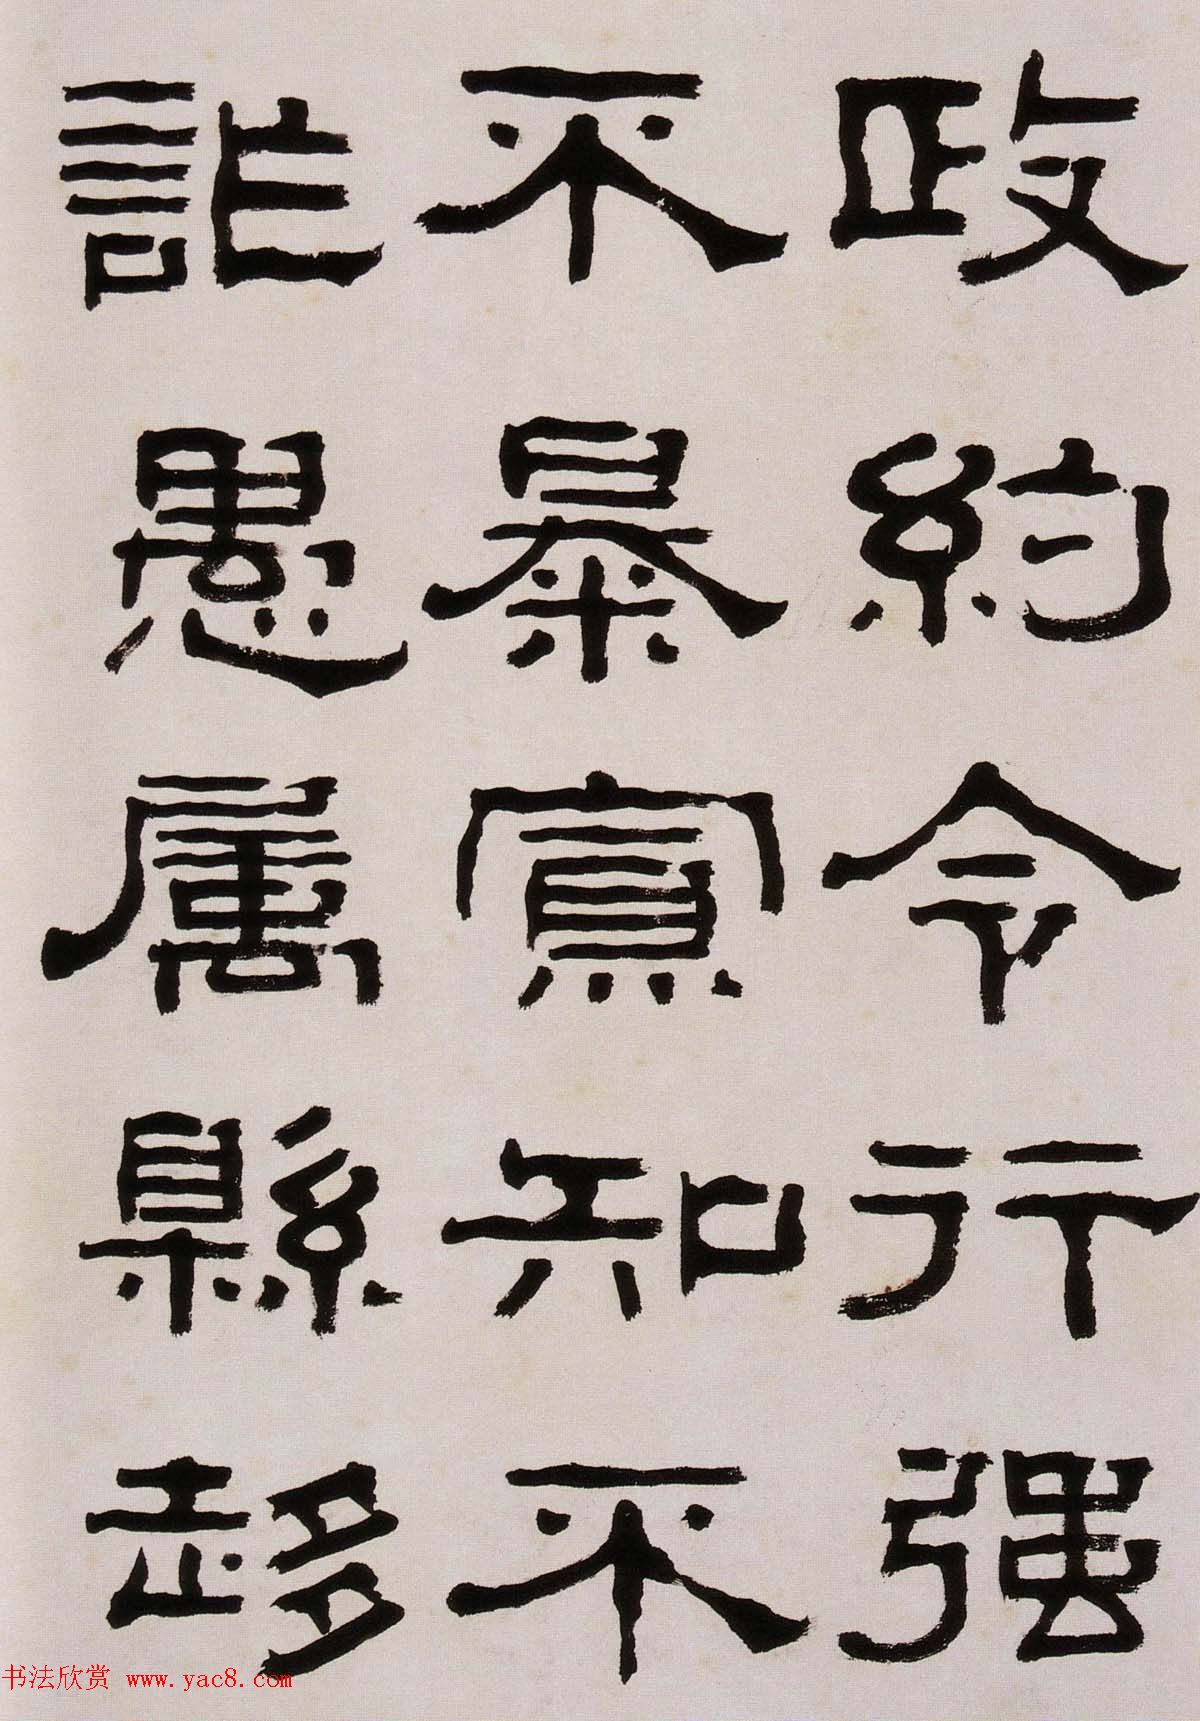 政約令行強
不暴寡知不
詐愚屬縣趍
书法欣赏 www.yac8.com